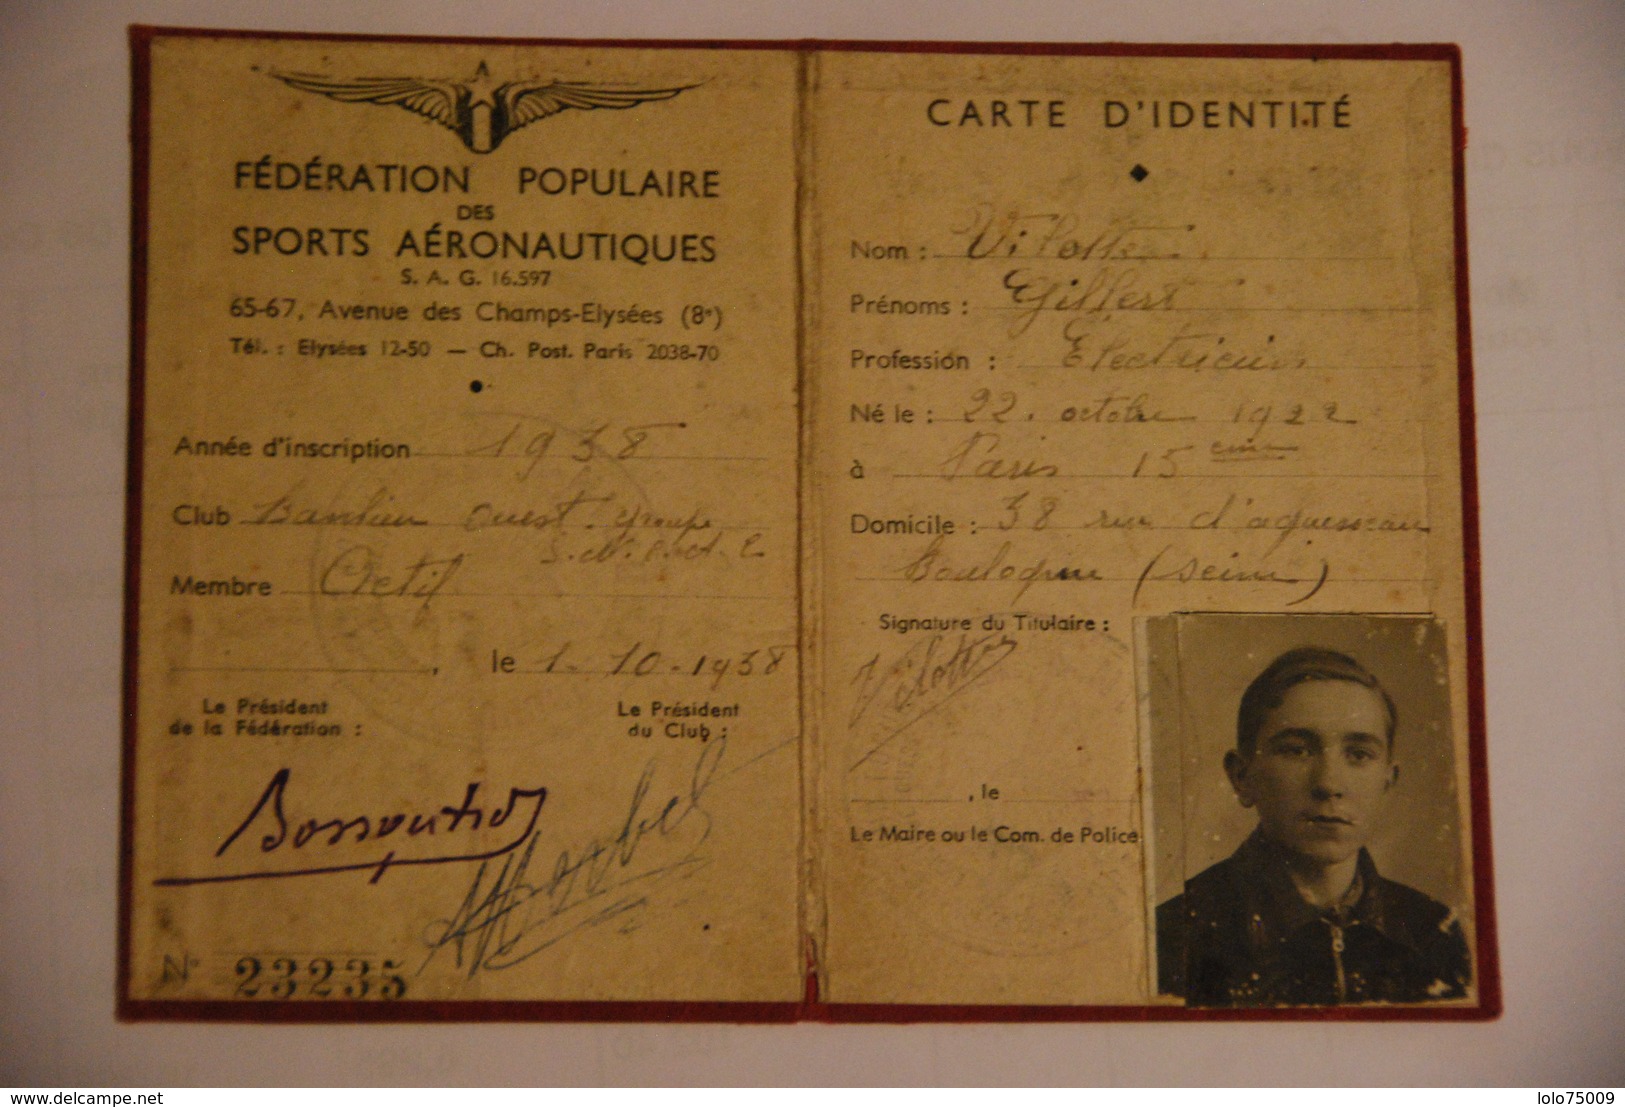 FÉDÉRATION POPULAIRE
DES
SPORTS AÉRONAUTIQUES
S. A. G. 16.597
65-67, Avenue des Champs-Elysées (8e)
Tél. : Elysées 12-50 — Ch. Post. Paris 2038-70
Année d'inscription 1938
Club Banlieue Ouest. groupe
Membre Actif
, le 1-10-1938
Le Président
de la Fédération :
Le Président
du Club :
Bossoutrot
N° 23235
CARTE D'IDENTITÉ
Nom : Vilotte
Prénoms : Gilbert
Profession : Electricien
Né le : 22. octobre 1922
à Paris 15eme
Domicile : 38 rue d'aguesseau
Boulogne (seine)
Signature du Titulaire :
Vilotte
, le
Le Maire ou le Com. de Police
www.delcampe.net
lolo75009